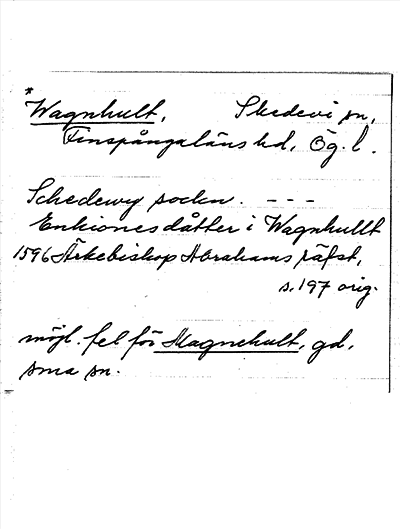 *
Wagnhult, Skedevi sn,
Finspångaläns hd, Ög. l.
Schedewy sockn. - - -
Enkiones dåtter i Wagnhullt
1596 Ärkebiskop Abrahams räfst,
s. 197 orig.
möjl. fel för Magnehult, gd,
sma sn.